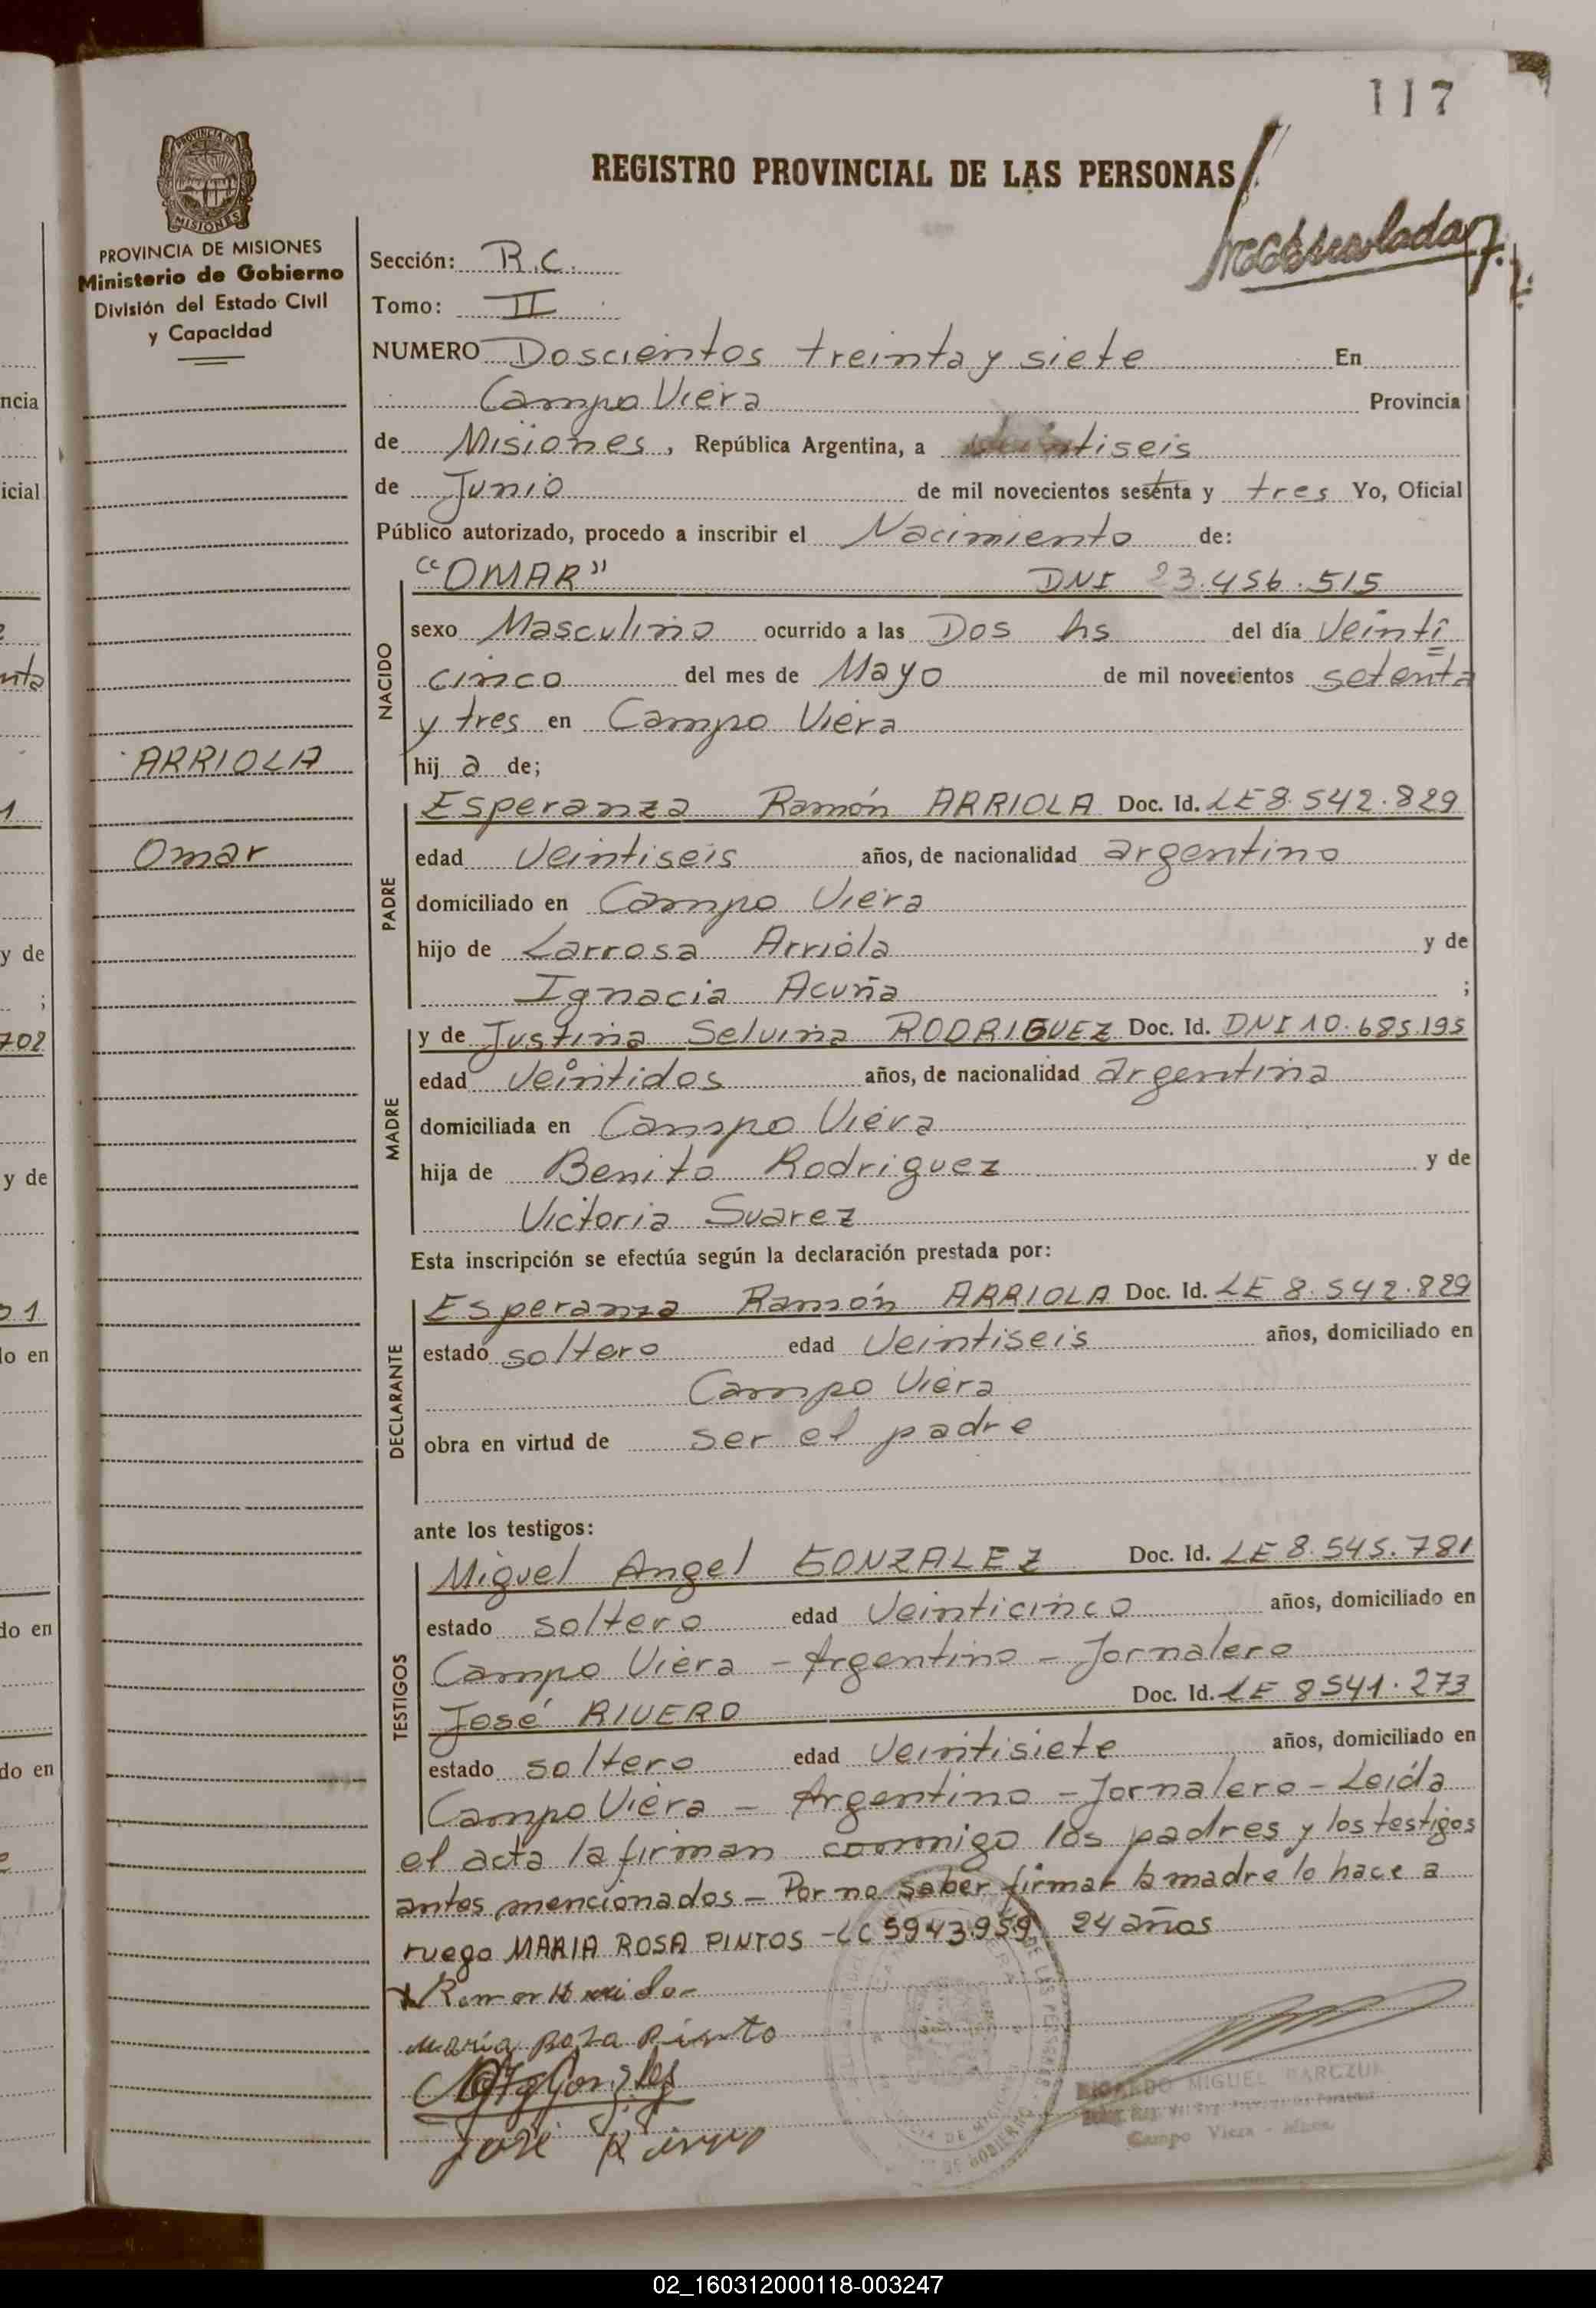 117
REGISTRO PROVINCIAL DE LAS PERSONAS
PROVINCIA DE MISIONES
MISIONES
PROVINCIA DE MISIONES
Ministerio de Gobierno
División del Estado Civil
y Capacidad
ARRIOLA
Omar
Sección: R.C.
Tomo: II
NUMERO Doscientos treinta y siete En
Campo Viera Provincia
de Misiones, República Argentina, a veintiseis
de Junio de mil novecientos sesenta y tres Yo, Oficial
Público autorizado, procedo a inscribir el Nacimiento de:
"OMAR" DNI 23.456.515
NACIDO
sexo Masculino ocurrido a las Dos hs del día Veinti
cinco del mes de Mayo de mil novecientos setenta
y tres en Campo Viera
hij a de;
PADRE
Esperanza Ramón ARRIOLA Doc. Id. LE 8.542.829
edad Veintiseis años, de nacionalidad argentino
domiciliado en Campo Viera
hijo de Larrosa Arriola y de
Ignacia Acuña ;
MADRE
y de Justina Selvina RODRIGUEZ Doc. Id. DNI 10.685.195
edad Veintidos años, de nacionalidad argentina
domiciliada en Campo Viera
hija de Benito Rodriguez y de
Victoria Suarez
Esta inscripción se efectúa según la declaración prestada por:
DECLARANTE
Esperanza Ramón ARRIOLA Doc. Id. LE 8.542.829
estado soltero edad Veintiseis años, domiciliado en
Campo Viera
obra en virtud de ser el padre
ante los testigos:
TESTIGOS
Miguel Angel GONZALEZ Doc. Id. LE 8.545.781
estado soltero edad Veinticinco años, domiciliado en
Campo Viera - Argentino - Jornalero
José RIVERO Doc. Id. LE 8541.273
estado soltero edad Veintisiete años, domiciliado en
Campo Viera - Argentino - Jornalero - Leída
el acta la firman conmigo los padres y los testigos
antes mencionados - Por no saber firmar la madre lo hace a
ruego MARIA ROSA PINTOS - LC 5943959 24 años
María Rosa Pinto
José
RICARDO MIGUEL
Campo Viera -
ncia
icial
y de
;
702
y de
lo en
do en
do en
02_160312000118-003247